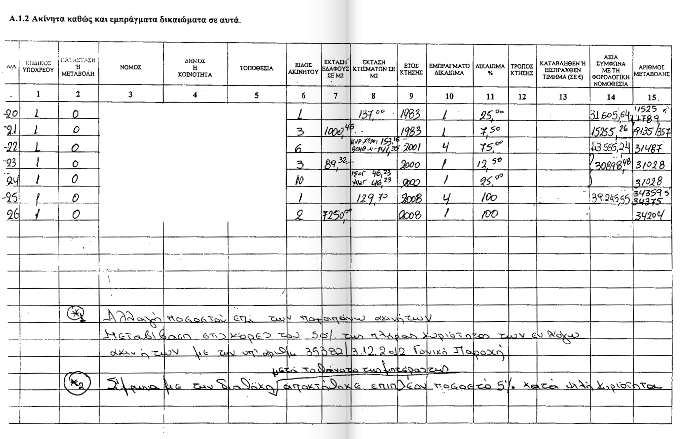 Α.1.2 Ακίνητα καθώς και εμπράγματα δικαιώματα σε αυτά.
Α/Α ΚΩΔΙΚΟΣ ΥΠΟΧΡΕΟΥ ΚΑΤΑΣΤΑΣΗ Ή ΜΕΤΑΒΟΛΗ ΝΟΜΟΣ ΔΗΜΟΣ Ή ΚΟΙΝΟΤΗΤΑ ΤΟΠΟΘΕΣΙΑ ΕΙΔΟΣ ΑΚΙΝΗΤΟΥ ΕΚΤΑΣΗ ΕΔΑΦΟΥΣ ΣΕ Μ2 ΕΚΤΑΣΗ ΚΤΙΣΜΑΤΩΝ ΣΕ Μ2 ΕΤΟΣ ΚΤΗΣΗΣ ΕΜΠΡΑΓΜΑΤΟ ΔΙΚΑΙΩΜΑ ΔΙΚΑΙΩΜΑ % ΤΡΟΠΟΣ ΚΤΗΣΗΣ ΚΑΤΑΒΛΗΘΕΝ Ή ΕΙΣΠΡΑΧΘΕΝ ΤΙΜΗΜΑ (ΣΕ €) ΑΞΙΑ ΣΥΜΦΩΝΑ ΜΕ ΤΗ ΦΟΡΟΛΟΓΙΚΗ ΝΟΜΟΘΕΣΙΑ ΑΡΙΘΜΟΣ ΜΕΤΑΒΟΛΗΣ
1 2 3 4 5 6 7 8 9 10 11 12 13 14 15
20 1 0 1 137,00 1983 1 25,00 31605,64
21 1 0 3 1000 1983 1 7,50 15255,26 9135/357
22 1 0 6 2001 4 75,00 31487
23 1 0 3 89,32 2000 1 12,50 31028
24 1 0 10 46,23 46,23 2000 1 25,00 31028
25 1 0 1 129,70 2008 4 100 39245,55 34359 34375
26 1 0 2 7250,00 2008 1 100 34204
*1 Αλλαγή ποσοστού επί των παραπάνω ακινήτων
Μεταβίβαση στις κόρες του 50% της πλήρους κυριότητος των εν λόγω
ακινήτων με την υπ' αριθμ 35382/3.12.2012 Γονική Παροχή
μετά το θάνατο της μητέρας της
*2 Σύμφωνα με την διαθήκη αποκτήθηκε επιπλέον ποσοστό 5% κατά ψιλή κυριότητα